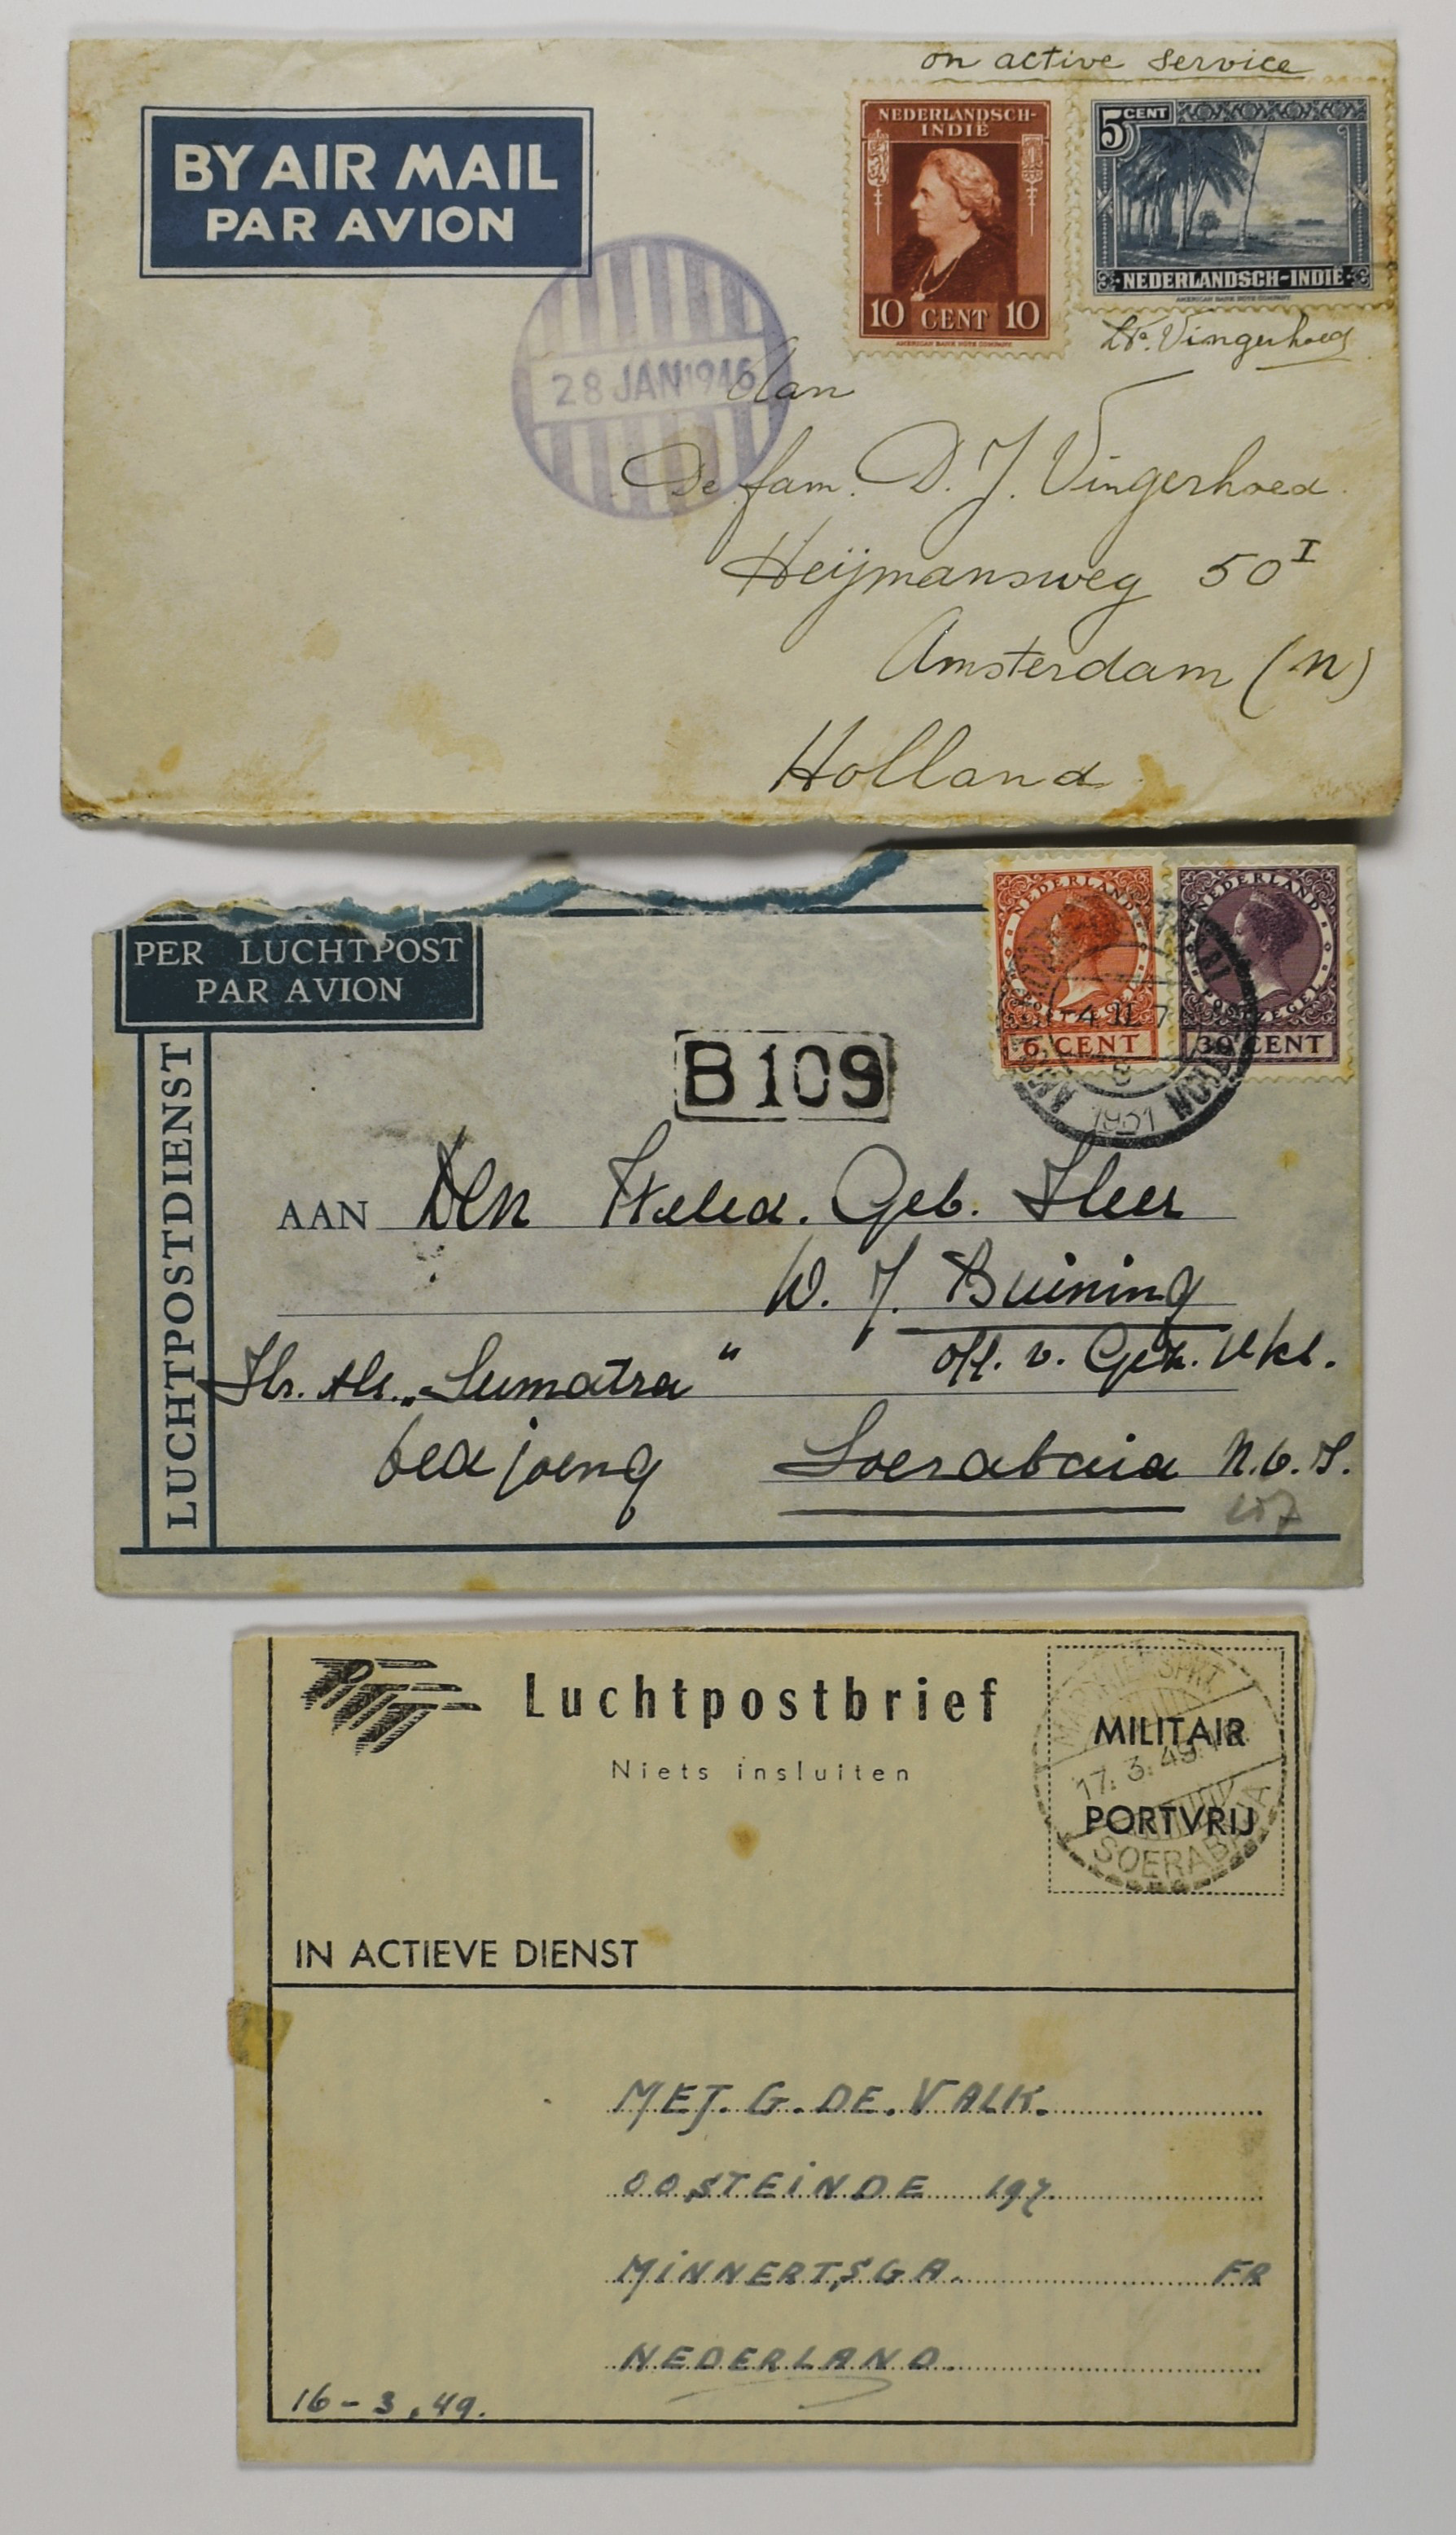 on active service
BY AIR MAIL
PAR AVION
NEDERLANDSCH-
INDIË
10 CENT 10
AMERICAN BANK NOTE COMPANY
5 CENT
NEDERLANDSCH-INDIË
AMERICAN BANK NOTE COMPANY
Vingerhoed
28 JAN 1946
Aan
De fam. D. J. Vingerhoed
Heijmansweg 50 I
Amsterdam (N)
Holland
PER LUCHTPOST
PAR AVION
LUCHTPOSTDIENST
NEDERLAND
POSTZEGEL
6 CENT
NEDERLAND
POSTZEGEL
30 CENT
4 II 7
8
1931
B109
AAN Den Weled. Geb. Heer
W. J. Buining
off. v. Gez.
Hr. Ms. „Sumatra"
Oedjoeng Soerabaia N.O.I.
107
PTT
Luchtpostbrief
Niets insluiten
MILITAIR
PORTVRIJ
17.3.49
SOERABAJA
IN ACTIEVE DIENST
MEJ. G. DE. VALK.
OOSTEINDE 197.
MINNERTSGA. FR
NEDERLAND.
16-3.49.